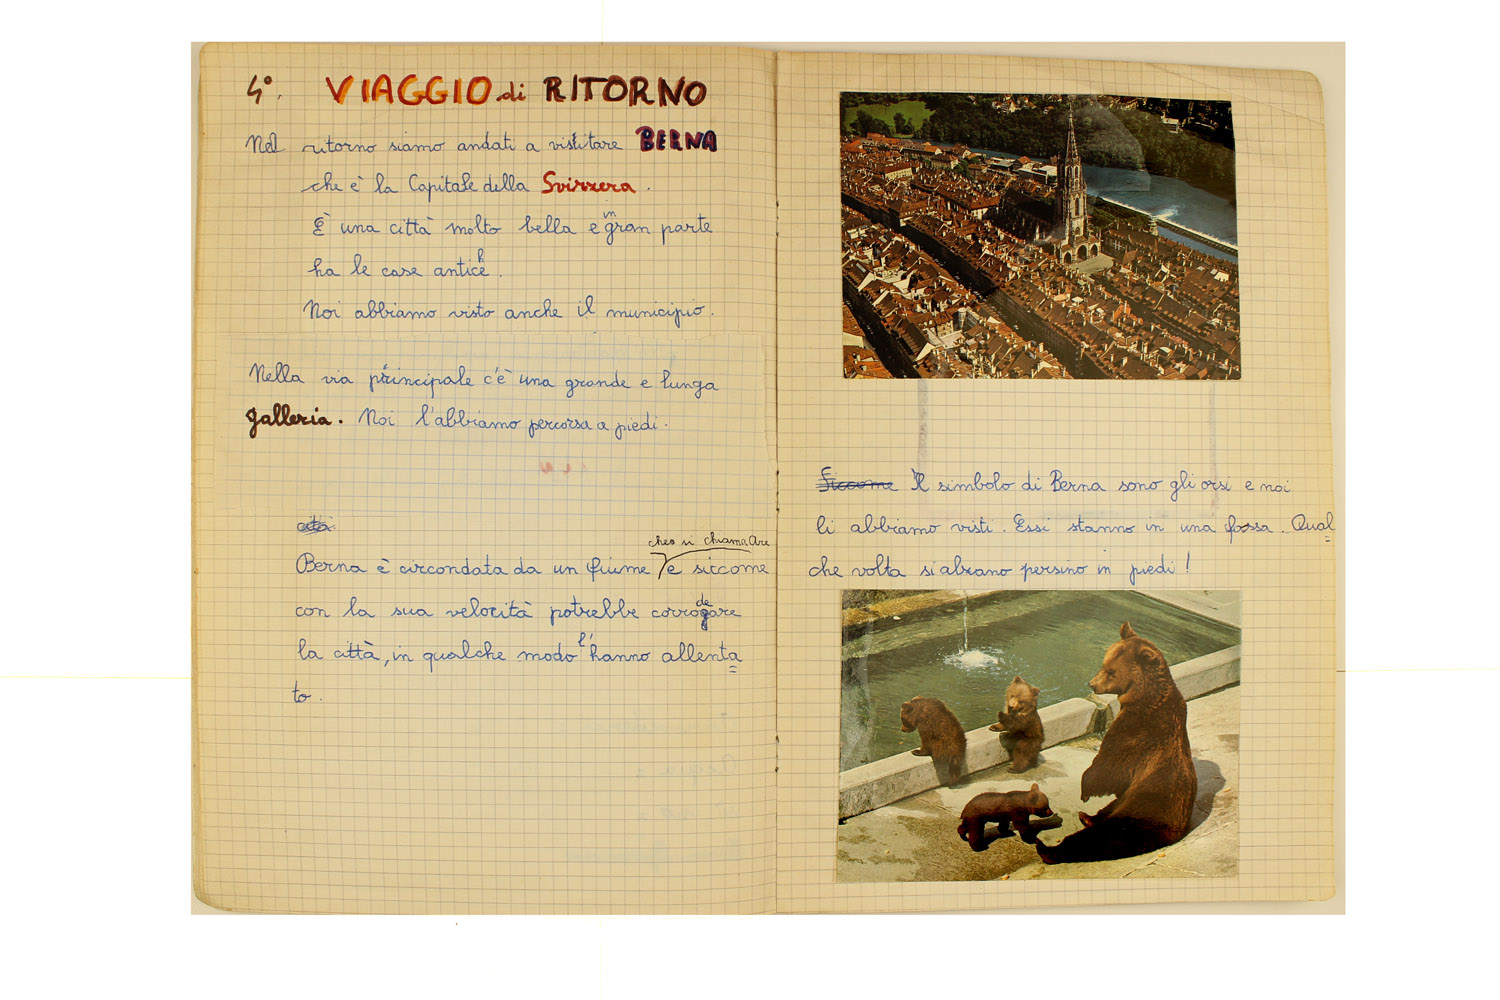 4°. VIAGGIO di RITORNO
Nel ritorno siamo andati a visitare BERNA
che è la Capitale della Svizzera.
È una città molto bella e in gran parte
ha le case antiche.
Noi abbiamo visto anche il municipio.
Nella via principale c'è una grande e lunga
galleria. Noi l'abbiamo percorsa a piedi.
che si chiama Are
Berna è circondata da un fiume e siccome
con la sua velocità potrebbe corrodere
la città, in qualche modo l'hanno allenta
to.
Siccome Il simbolo di Berna sono gli orsi e noi
li abbiamo visti. Essi stanno in una fossa. Qual
che volta si alzano persino in piedi!